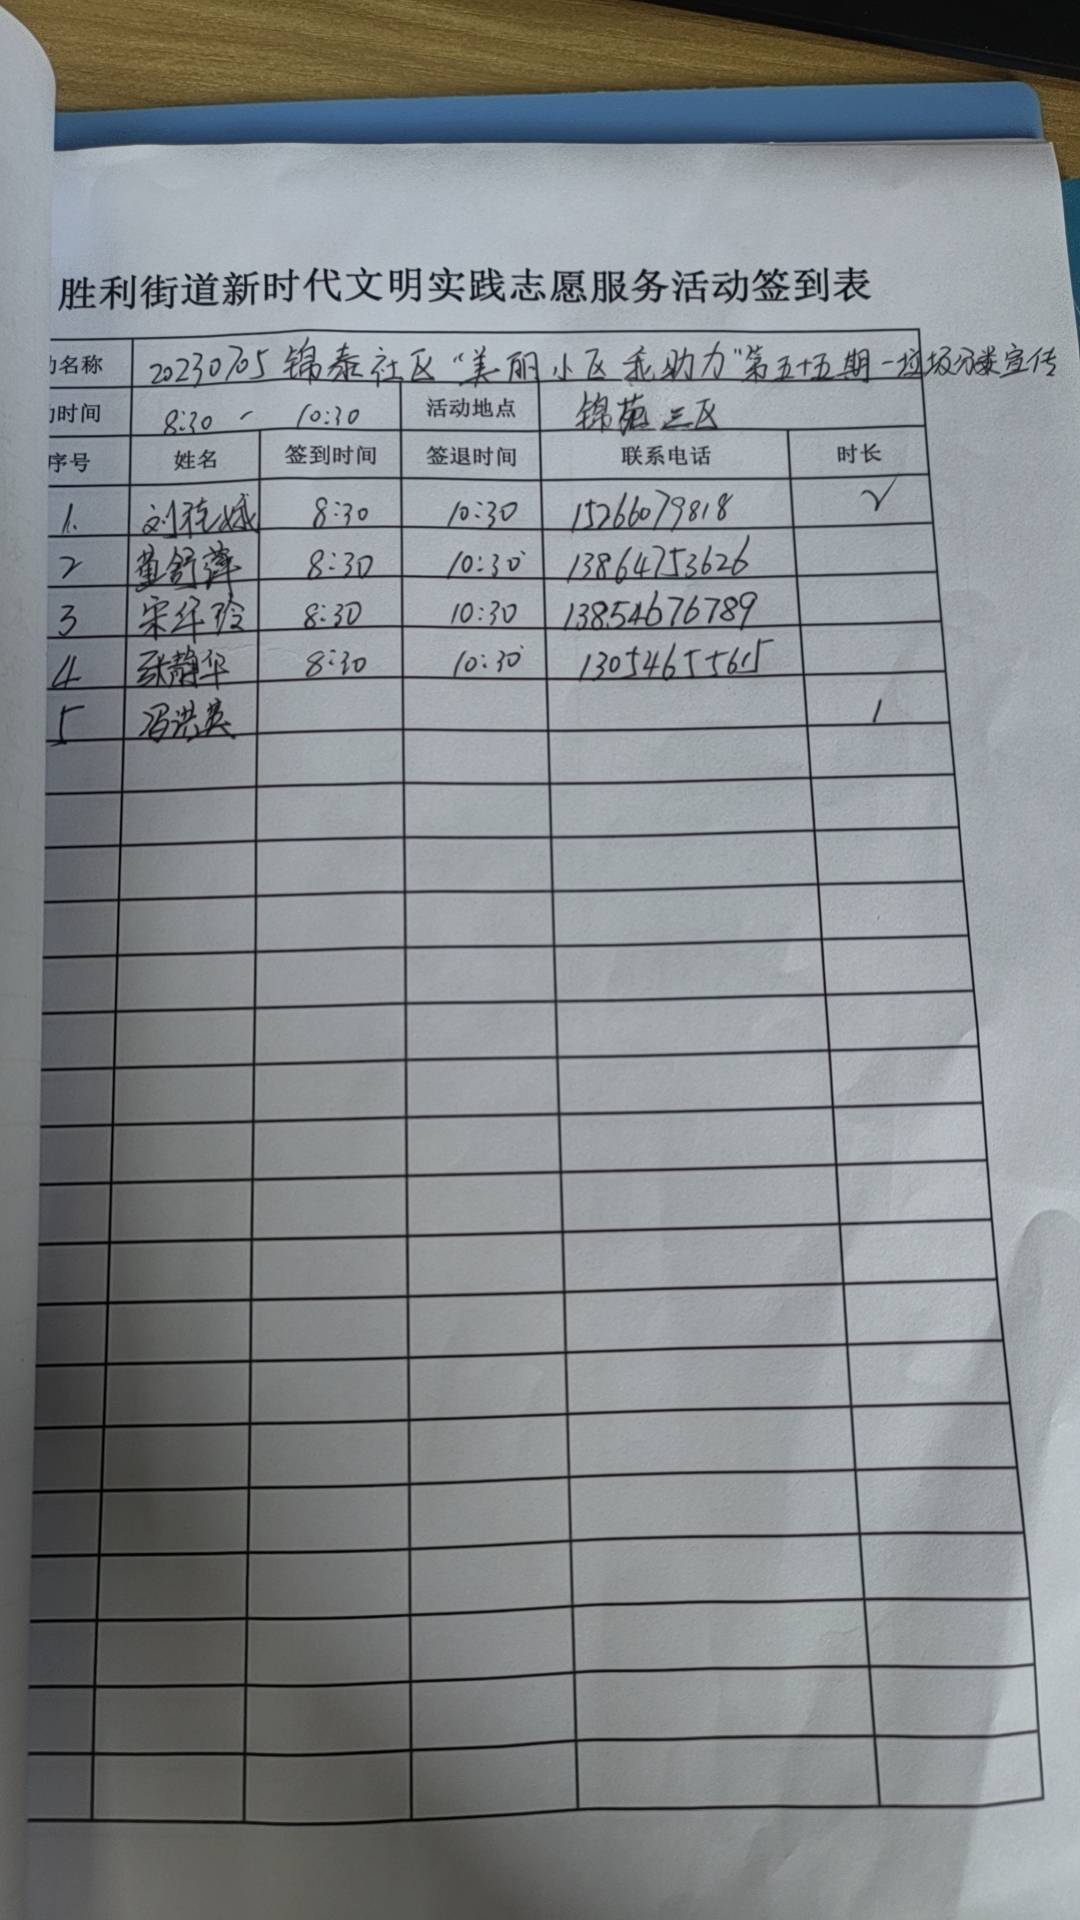 胜利街道新时代文明实践志愿服务活动签到表
动名称 20230705 锦泰社区“美丽小区 我助力”第五十五期-垃圾分类宣传
动时间 8:30 - 10:30 活动地点 锦苑三区
序号 姓名 签到时间 签退时间 联系电话 时长
1. 刘桂娥 8:30 10:30 15266079818 √
2 董舒萍 8:30 10:30 13864753626
3 宋年玲 8:30 10:30 13854676789
4 张静华 8:30 10:30 13054655615
5 冯洪英 /